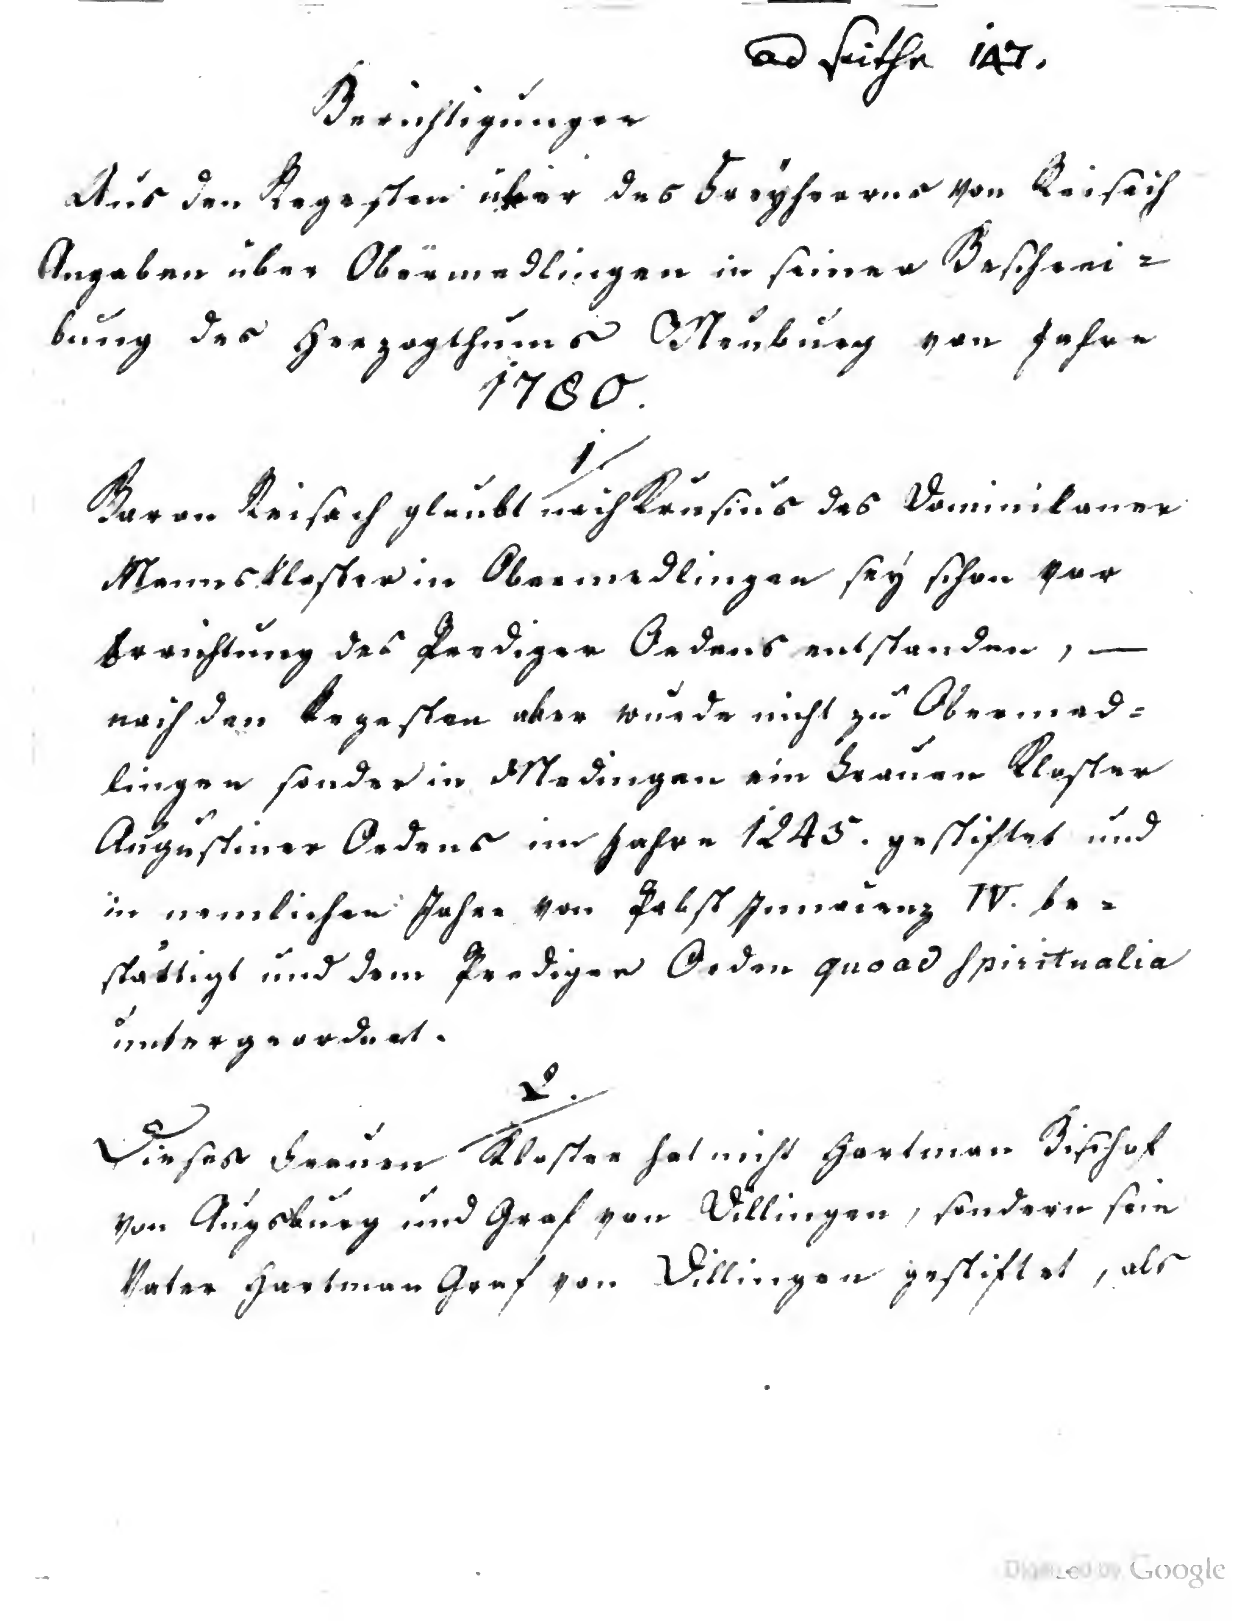 ad Seithe 147.
Berichtigungen
Aus den Regesten über des Freyherrns von Reisach
Angaben über Obermedlingen in seiner Beschrei=
bung des Herzogthums Neuburg von Jahre
1780.
1.
Baron Reisach glaubt nach Krusius das Dominikaner
Mannskloster in Obermedlingen sey schon vor
Errichtung des Prediger Ordens entstanden, —
nach den Regesten aber wurde nicht zu Obermed=
lingen sonder in Medingen ein Frauen Kloster
Augustiner Ordens im Jahre 1245. gestiftet und
in nemlichen Jahre von Pabst Innocenz IV. be=
stättigt und dem Prediger Orden quoad spiritualia
untergeordnet.
2.
Dieses Frauen Kloster hat nicht Hartman Bischof
von Augsburg und Graf von Dillingen, sondern sein
Vater Hartman Graf von Dillingen gestiftet, als
Digitized by Google